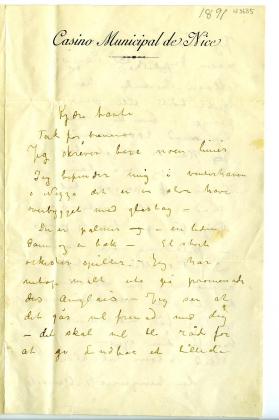 1891
Casino Municipal de Nice
Kjære tante
Tak for
Jeg skriver bare noen linier
Jeg befinder mig i vinterhaven
i Nizza det er en stor have
overbygget med glastag –
En er palmer og – en liden
dam og en bæk – Et stort
orkester spiller – Jeg har
netop mødt ota på promenade
des Anglais – Jeg ser at
det går vel frem med dig
– det skal vel bli råd for
at gi et billede